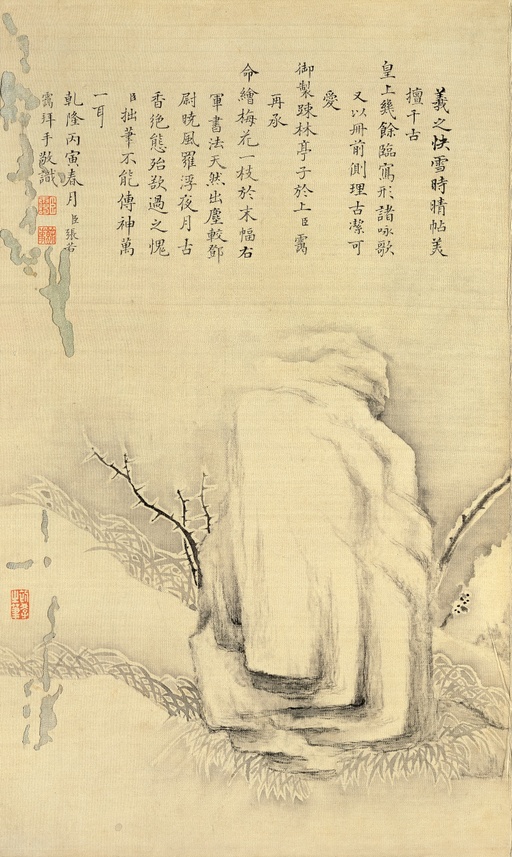 羲之快雪時晴帖美
擅千古
皇上幾餘臨寫形諸咏歌
又以冊前側理古潔可
愛
御製疎林亭子於上臣靄
再承
命繪梅花一枝於末幅右
軍書法天然出塵較鄧
尉晓風羅浮夜月古
香絶態殆欲過之愧
臣拙筆不能傳神萬
一耳
乾隆丙寅春月臣張若
靄拜手敬識